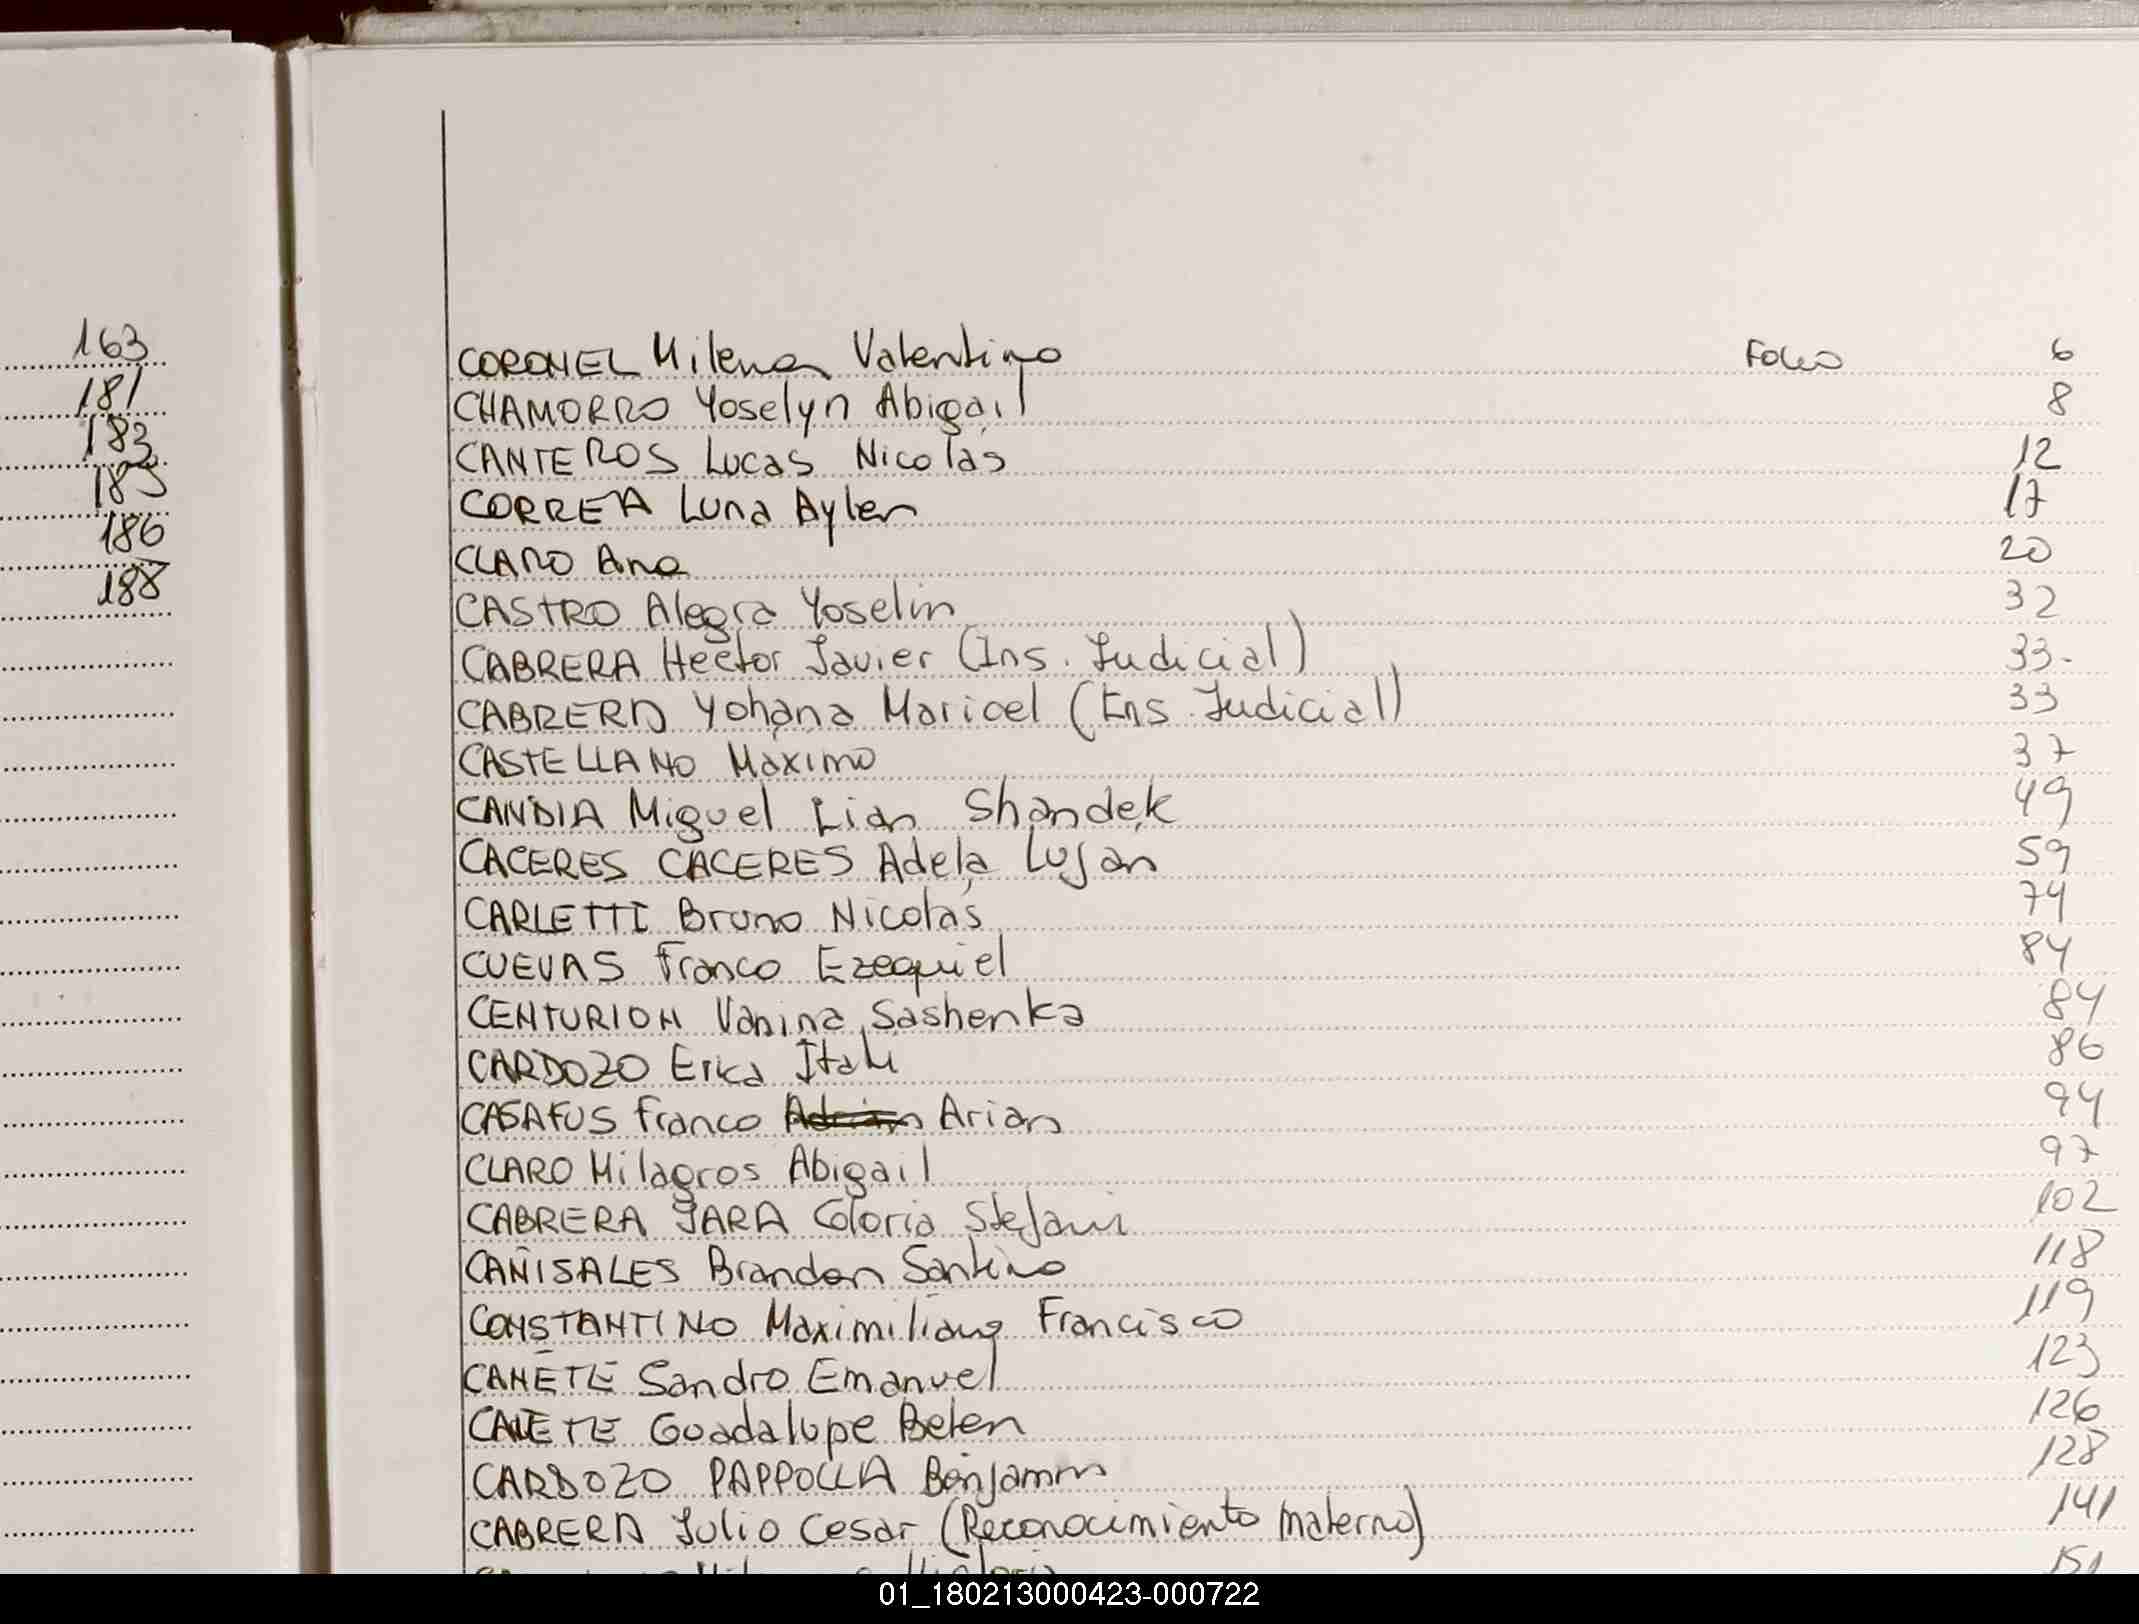 163
181
183
185
186
188
CORONEL Milena Valentina Folio 6
CHAMORRO Yoselyn Abigail 8
CANTEROS Lucas Nicolás 12
CORREA Luna Aylen 17
CLARO Ana 20
CASTRO Alegra Yoselin 32
CABRERA Hector Javier (Ins. Judicial) 33.
CABRERA Yohana Maricel (Ins. Judicial) 33
CASTELLANO Máximo 37
CANDIA Miguel Lian Shandek 49
CACERES CACERES Adela Lujan 59
CARLETTI Bruno Nicolás 74
CUEVAS Franco Ezequiel 84
CENTURION Vanina Sashenka 84
CARDOZO Erica Itati 86
CASAFUS Franco Adrian Arian 94
CLARO Milagros Abigail 97
CABRERA JARA Gloria Stefani 102
CAÑISALES Brandon Santino 118
CONSTANTINO Maximiliano Francisco 119
CAÑETE Sandro Emanuel 123
CAÑETE Guadalupe Belen 126
CARDOZO PAPPOLLA Benjamin 128
CABRERA Julio Cesar (Reconocimiento Materno) 141
151
01_180213000423-000722